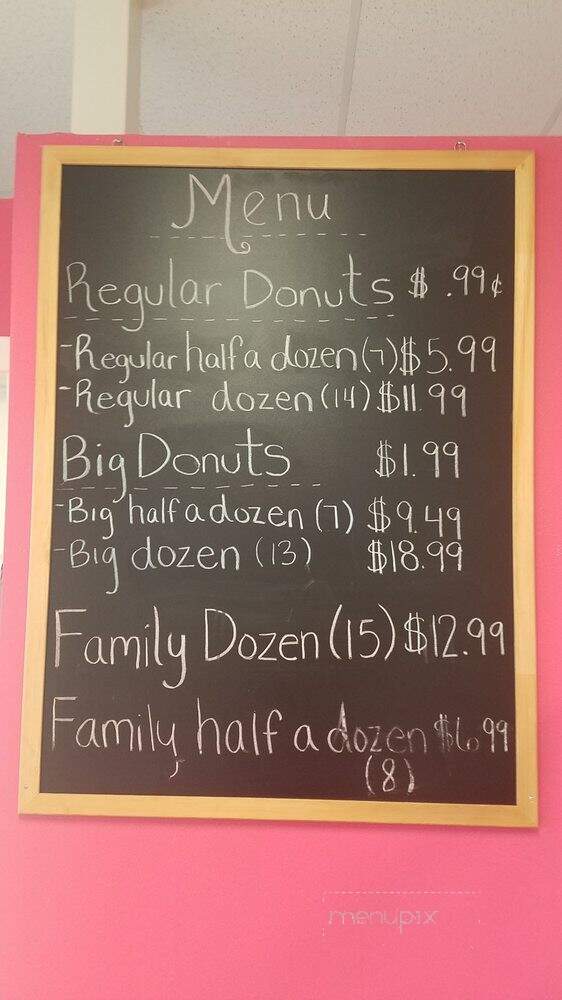 Menu
Regular Donuts $ .99¢
-Regular half a dozen (7) $5.99
-Regular dozen (14) $11.99
Big Donuts $1.99
-Big half a dozen (7) $9.49
-Big dozen (13) $18.99
Family Dozen (15) $12.99
Family half a dozen $6.99
(8)
menupix